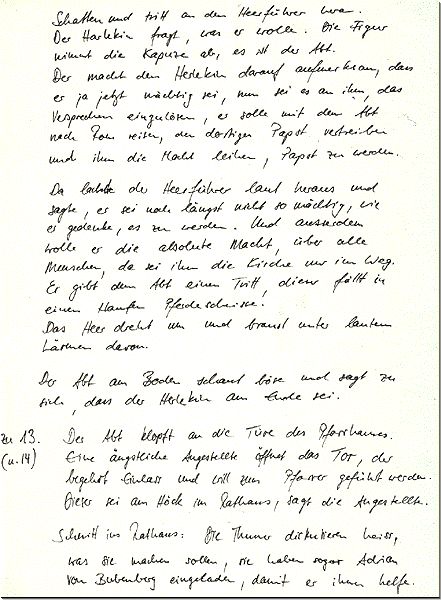 Schatten und tritt an den Heerführer heran.
Der Harlekin fragt, was er wolle. Die Figur
nimmt die Kapuze ab, es ist der Abt.
Der macht den Herlekin darauf aufmerksam, dass
er ja jetzt mächtig sei, nun sei es an ihm, das
Versprechen einzulösen, er solle mit dem Abt
nach Rom reisen, den dortigen Papst vertreiben
und ihm die Macht leihen, Papst zu werden.
Da lachte der Heerführer laut heraus und
sagte, er sei noch längst nicht so mächtig, wie
er gedenke, es zu werden. Und ausserdem
wolle er die absolute Macht, über alle
Menschen, da sei ihm die Kirche nur im Weg.
Er gibt dem Abt einen Tritt, dieser fällt in
einen Haufen Pferdescheisse!
Das Heer dreht um und braust unter lautem
Lärmen davon.
Der Abt am Boden schaut böse und sagt zu
sich, dass der Herlekin am Ende sei.
zu 13. Der Abt klopft an die Türe des Pfarrhauses.
(u. 14) Eine ängstliche Angestellte öffnet das Tor, der
begehrt Einlass und will zum Pfarrer geführt werden.
Dieser sei am Höck im Rathaus, sagt die Angestellte.
Schnitt ins Rathaus: Die Thuner diskutieren heiss,
was sie machen sollen, sie haben sogar Adrian
von Bubenberg eingeladen, damit er ihnen helfe.